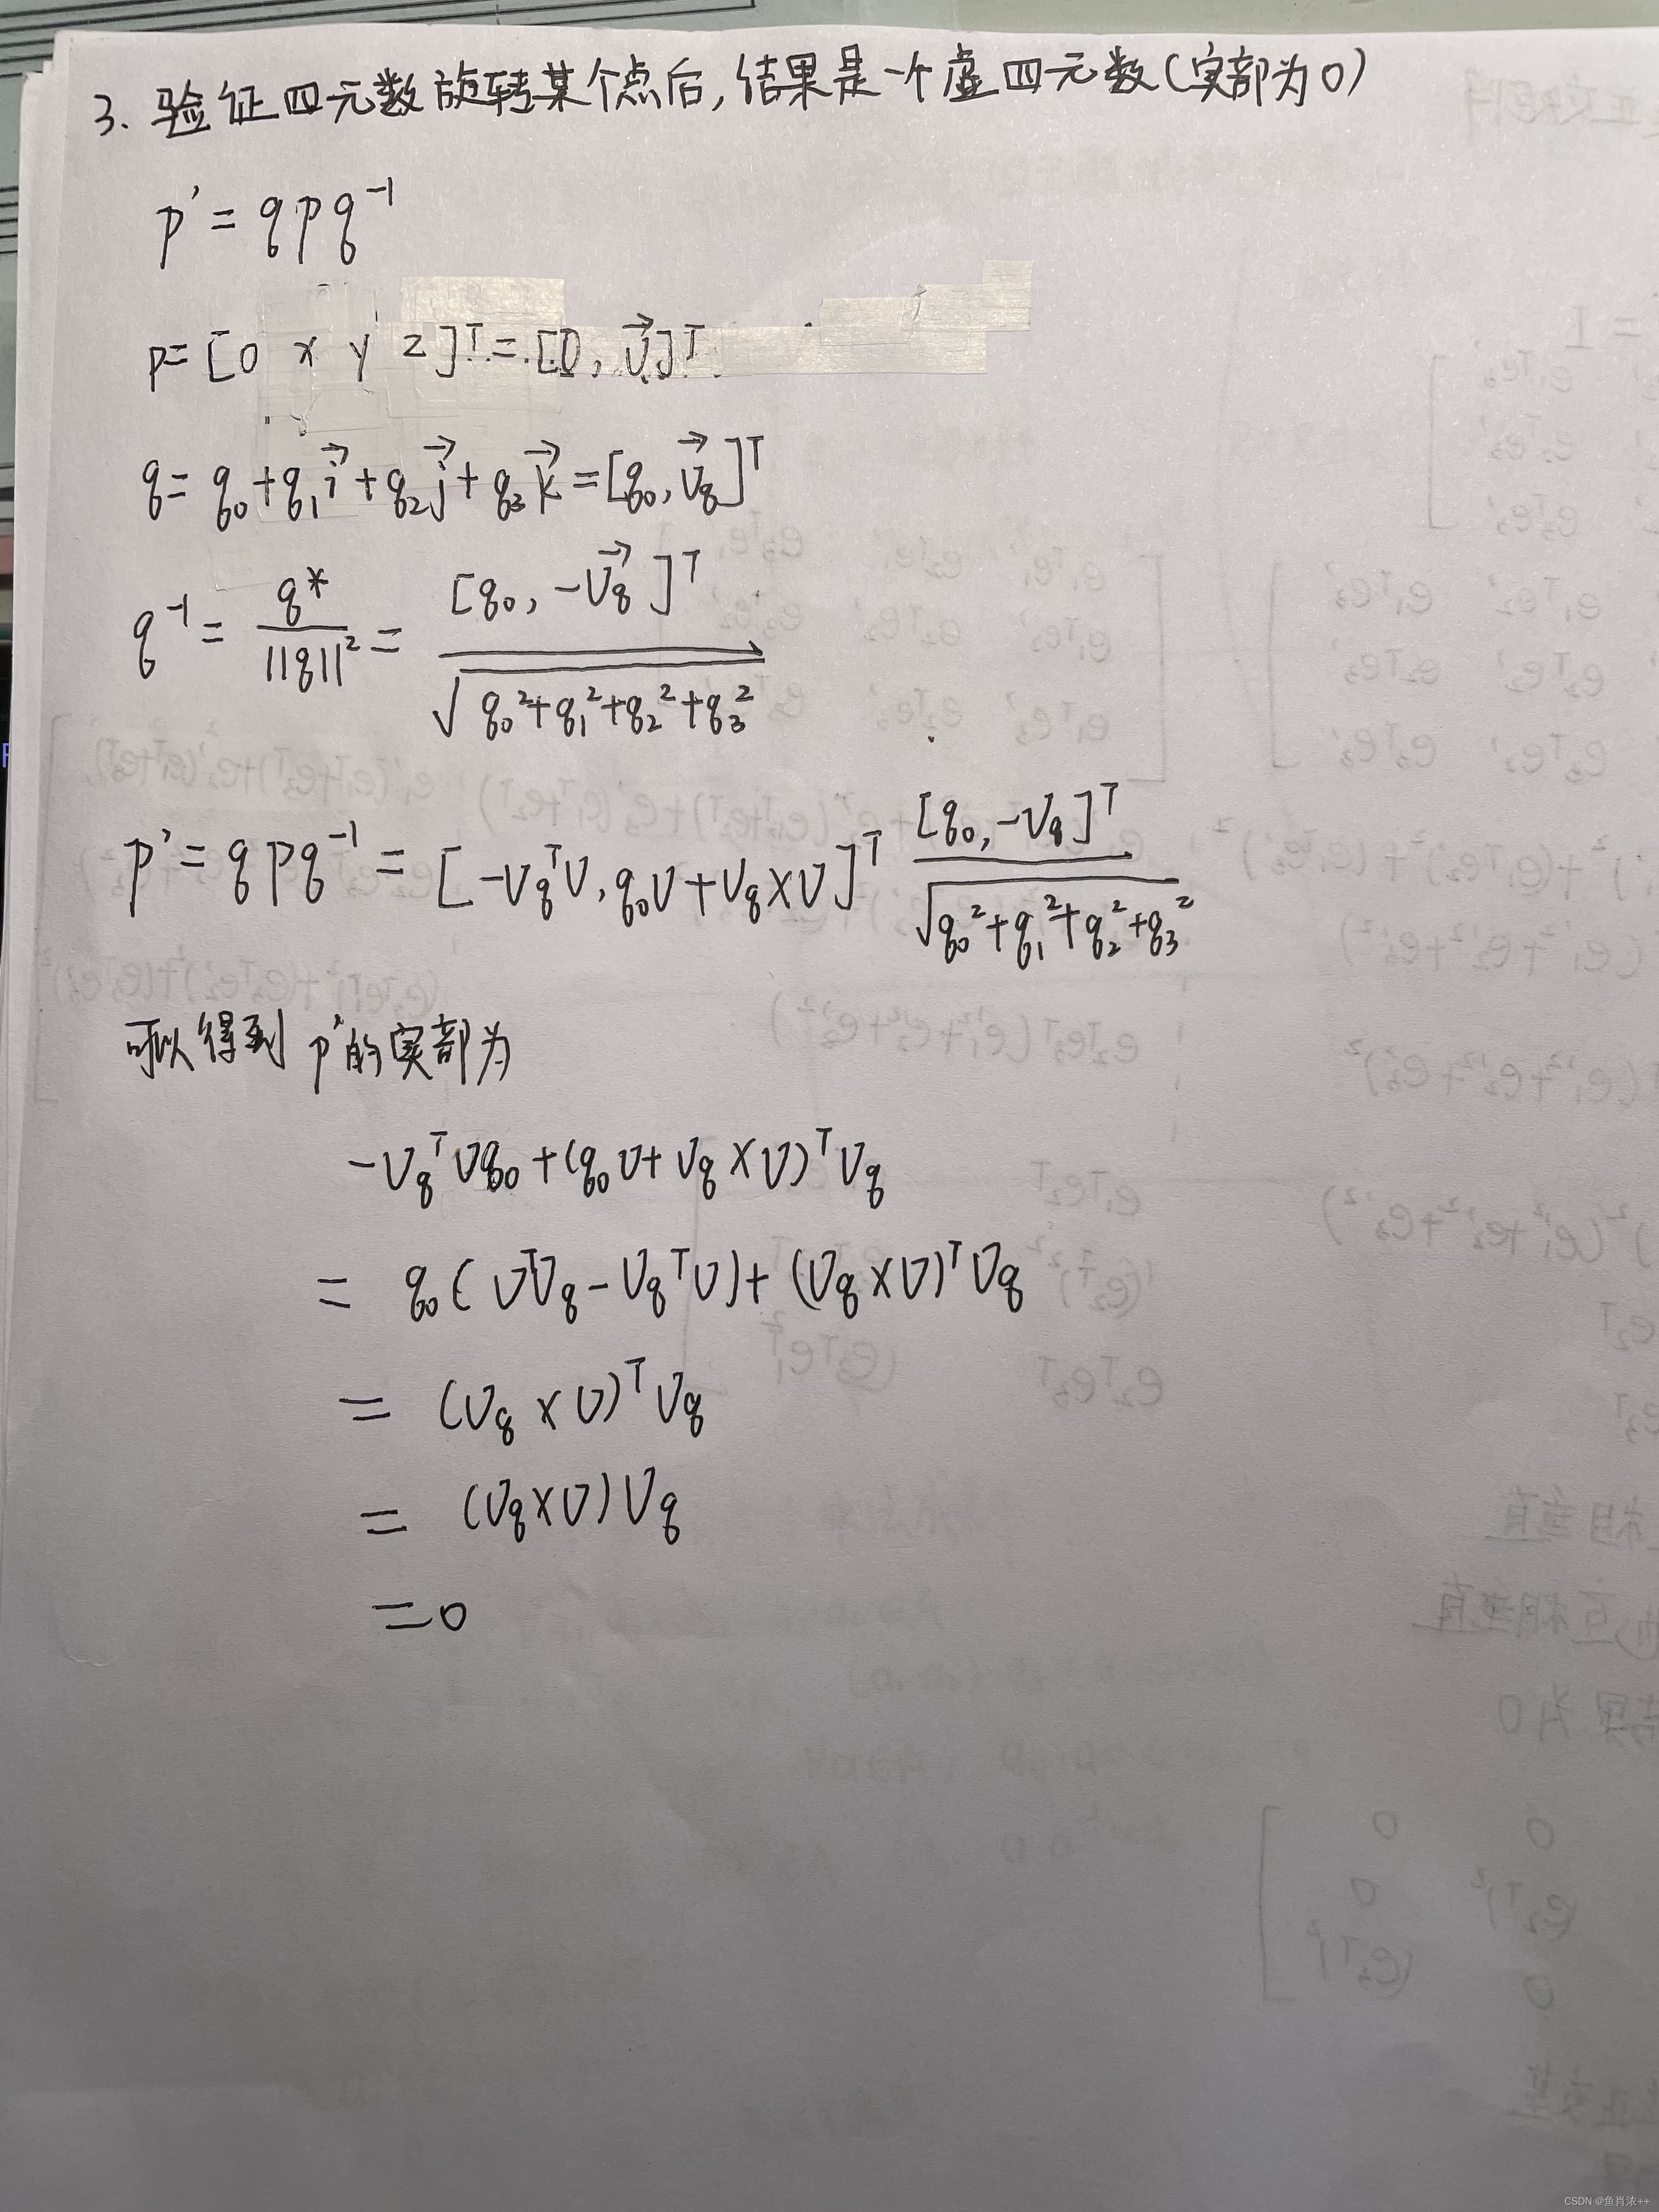 3. 验证四元数旋转某个点后,结果是一个虚四元数(实部为0)
p' = q p q⁻¹
p = [0 x y z]ᵀ = [0, v⃗]ᵀ
q = q₀ + q₁i⃗ + q₂j⃗ + q₃k⃗ = [q₀, v⃗_q]ᵀ
q⁻¹ = q* / ||q||² = [q₀, -v⃗_q]ᵀ / √(q₀² + q₁² + q₂² + q₃²)
p' = q p q⁻¹ = [-v_qᵀv, q₀v + v_q × v]ᵀ [q₀, -v_q]ᵀ / √(q₀² + q₁² + q₂² + q₃²)
可以得到 p'的实部为
-v_qᵀv q₀ + (q₀v + v_q × v)ᵀ v_q
= q₀(vᵀv_q - v_qᵀv) + (v_q × v)ᵀ v_q
= (v_q × v)ᵀ v_q
= (v_q × v) v_q
= 0
CSDN @鱼肖浓++